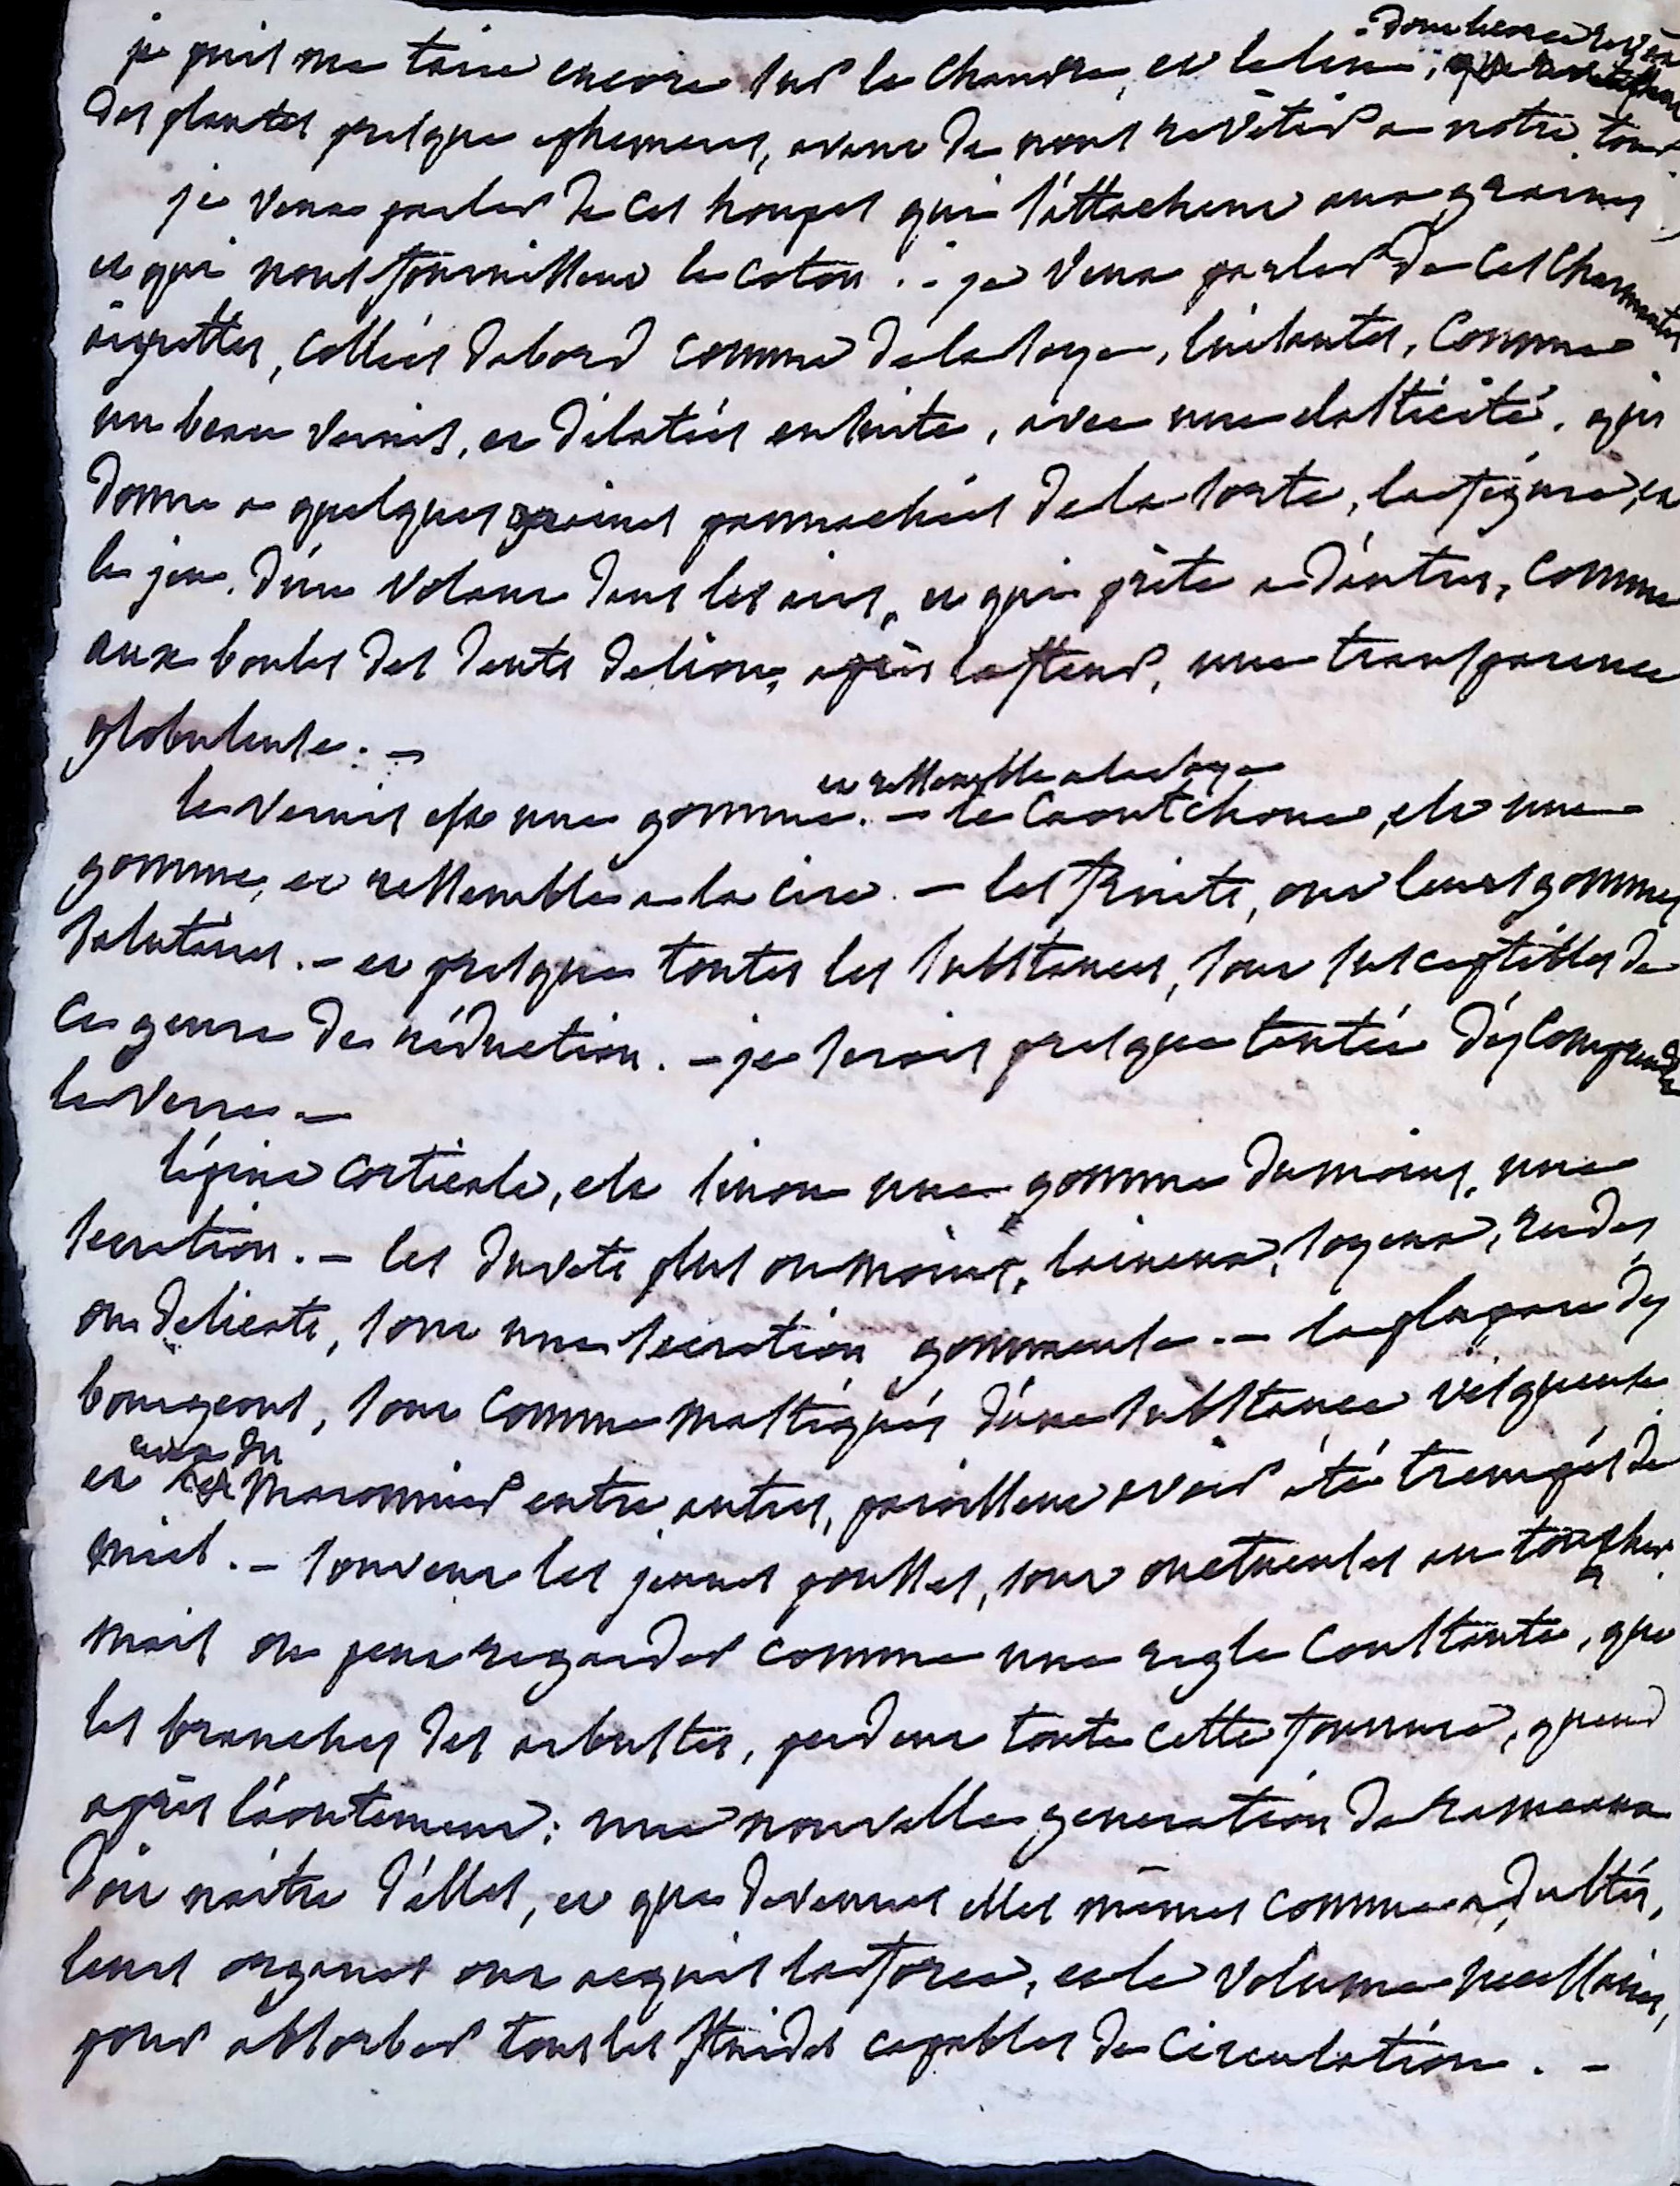 je puis me taire encore sur le chanvre, et le lin,
des plantes presque ephemeres, avant de nous revêtir a notre tour
je veux parler de ces houpes qui s'attachent aux graines
et qui nous fournissent le coton . - je veux parler de ces charmantes
aigrettes, collées dabord comme de la soye, luisantes, comme
un beau vernis, et dilatées ensuite, avec une elasticité, qui
donne a quelques graines pannachées de la sorte, la figure, et
le jeu d'un volant dans les airs, et qui prête a d'autres, comme
aux boules des dents de lion, après la fleur, une transparence
globuleuse. -
et ressemble a la soye
le vernis est une gomme. - le Caoutchouc, est une
gomme, et ressemble a la cire. - les fruits, ont leurs gommes
salutaires. - et presque toutes les substances, sont susceptibles de
ce genre de réduction. - je serois presque tentée d'y comprendre
le verre -
l'épine corticale, est sinon une gomme du moins, une
secretion. - les duvets plus ou moins, laineux, soyeux, rudes
ou delicats, sont une secretion gommeuse. - la plupart des
bourgeons, sont comme mastiqués d'une substance visqueuse
ceux du
et maronnier entre autres, paroissent avoir été trempés de
miel. - souvent les jeunes pousses, sont onctueuses au toucher
mais on peut regarder comme une regle constante, que
les branches des arbustes, perdent toute cette fourrure, quand
après l'aoutement; une nouvelle generation de rameaux
doit naître d'elles, et que devenues elles mêmes comme adultes,
leurs organes ont acquis la force, et le volume necessaires,
pour absorber tous les fluides capables de circulation. -